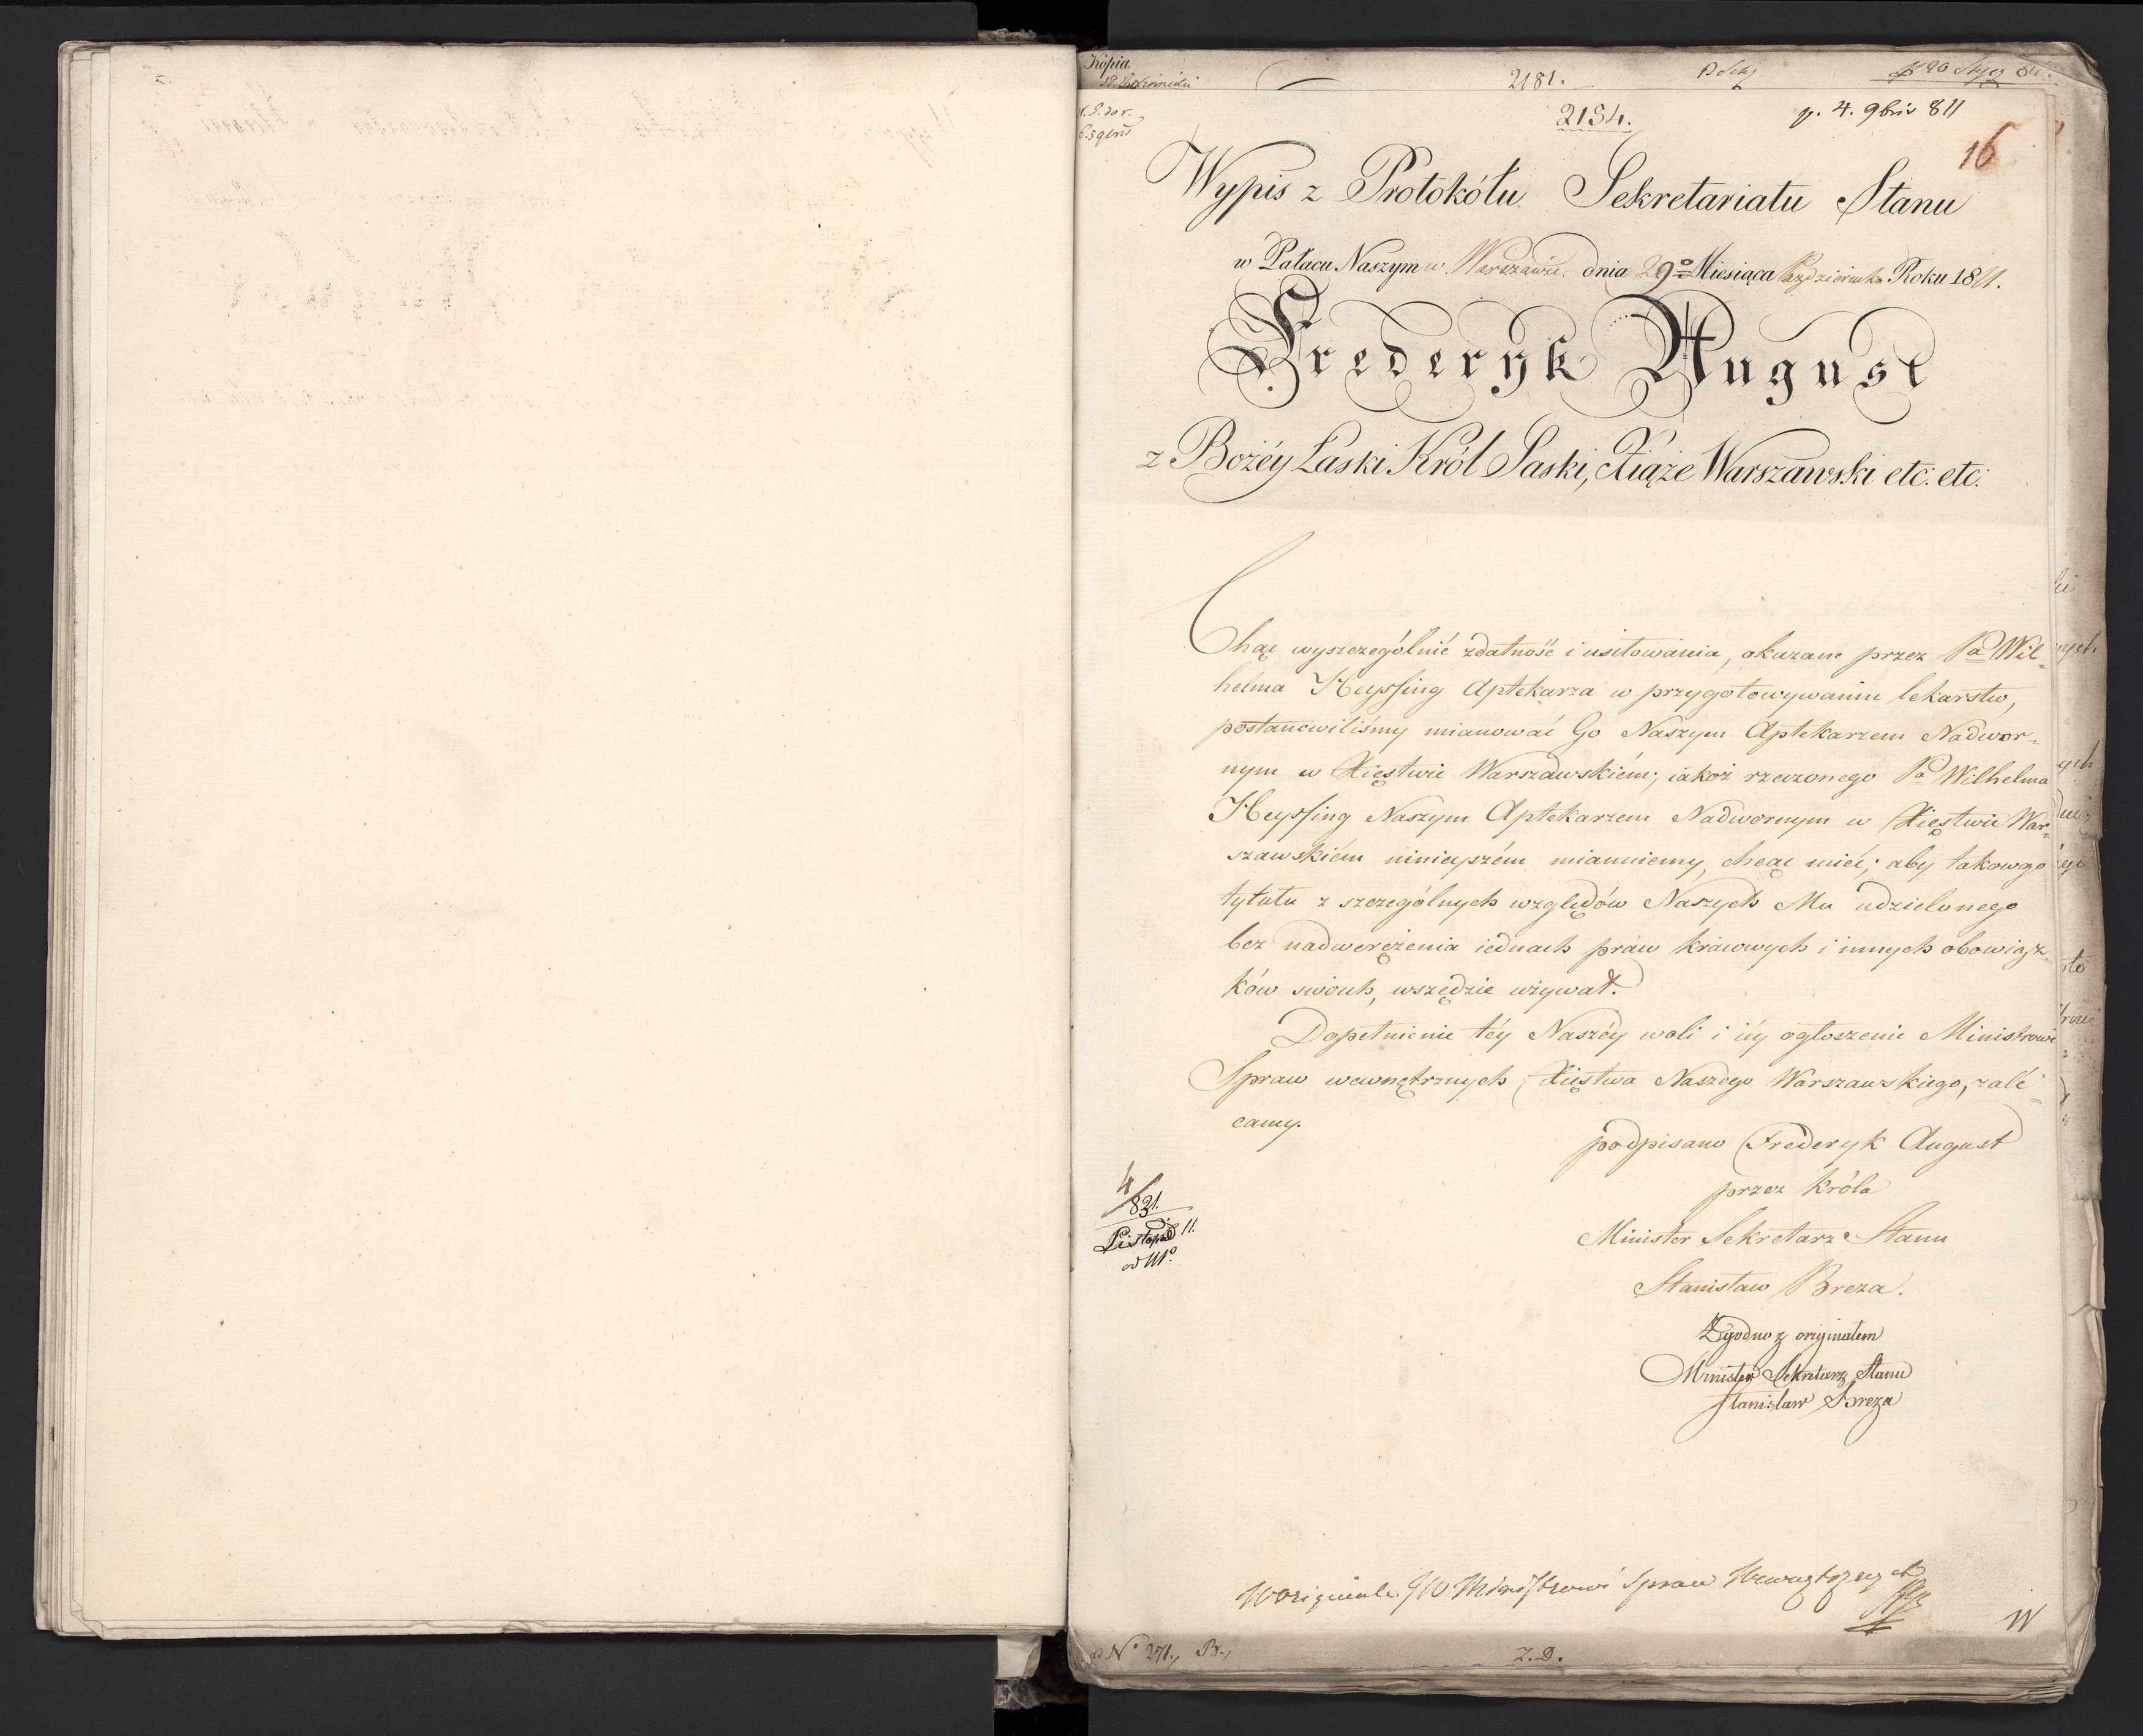 Kopia
2181.
2154.
p. 4. 9bris 811
16
Wypis z Protokółu Sekretariatu Stanu
w Pałacu Naszym w Warszawie dnia 29º Miesiąca Października Roku 1811.
Frederyk August
z Bożéy Łaski Król Saski, Xiąże Warszawski etc: etc:
Chcąc wyszczególnić zdatność i usiłowania, okazane przez Pa Wil=
helma Heyssing Aptekarza w przygotowywaniu lekarstw,
postanowiliśmy mianować Go Naszym Aptekarzem Nadwor=
nym w Xięstwie Warszawskiém; iakoż rzeczonego Pa Wilhelma
Heyssing Naszym Aptekarzem Nadwornym w Xięstwie War=
szawskiém ninieyszém mianuiemy, chcąc mieć; aby takowego
tytułu z szczególnych względów Naszych Mu udzielonego
bez nadwerężenia iednach praw kraiowych i innych obowiąz=
ków swoich, wszędzie używał.
Dopełnienie téy Naszéy woli i iéy ogłoszenie Ministrowi
Spraw wewnętrznych Xięstwa Naszego Warszawskiego, zalé=
camy.
podpisano Frederyk August
przez Króla
Minister Sekretarz Stanu
Stanisław Breza.
4/831.
Listopad 11.
Zgodno z originałem
Minister Sekretarz Stanu
Stanisław Breza
W originale JW Ministrowi Spraw Wewnętrznych
W
Nº 271.,
Z. D.